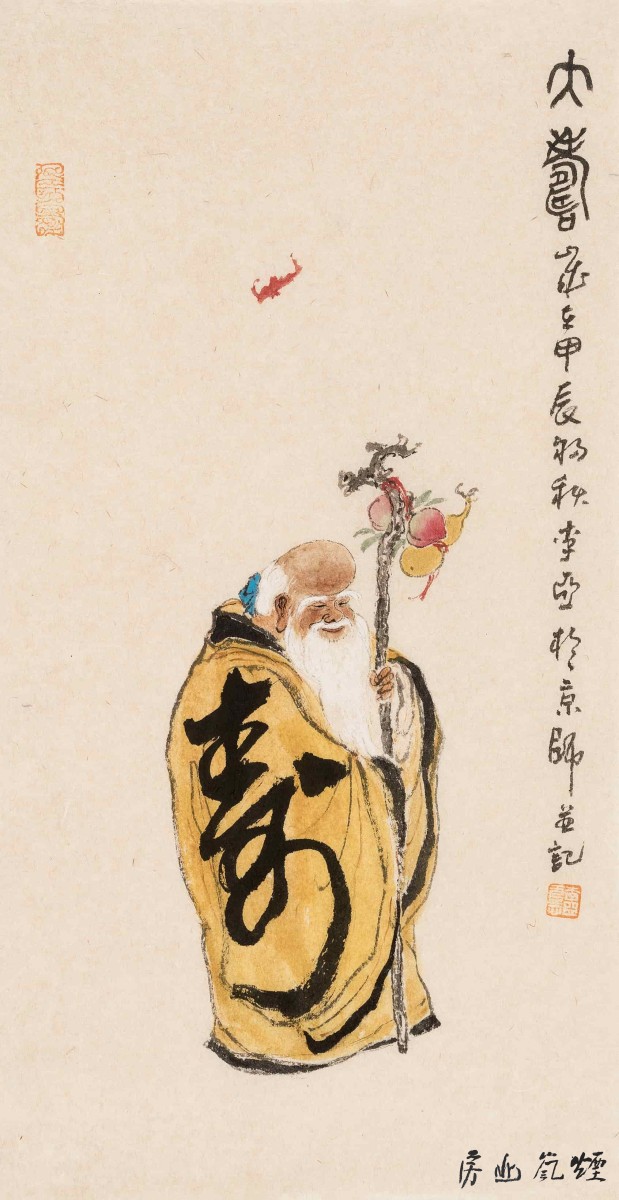 大壽
歲在甲辰初秋李亞於京師並記
壽
煙氣山房